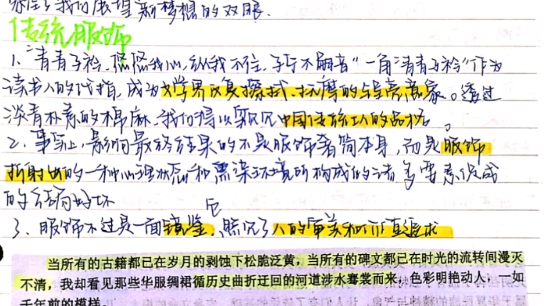 我们展望新梦想的双眼.
传统服饰
1. "青青子衿,悠悠我心,纵我不往,子宁不嗣音"一角"青青子衿"作为
读书人的代指,成为文学界反复擦拭、抚摩的经常意象。透过
淡青朴素的棉麻,我们得以窥见中国读书人的品格。
2. 事实上,影响最终结果的不是服饰套筒本身,而是服饰
折射出的一种心理状态和熏染环境所构成的诸多要素促成
的结局好坏
3. 服饰不过是一面镜鉴,它照见了人的审美和价值追求
当所有的古籍都已在岁月的剥蚀下松脆泛黄,当所有的碑文都已在时光的流转间漫灭
不清,我却看见那些华服绸裙循历史曲折迂回的河道涉水褰裳而来,色彩明艳动人,一如
千年前的模样.